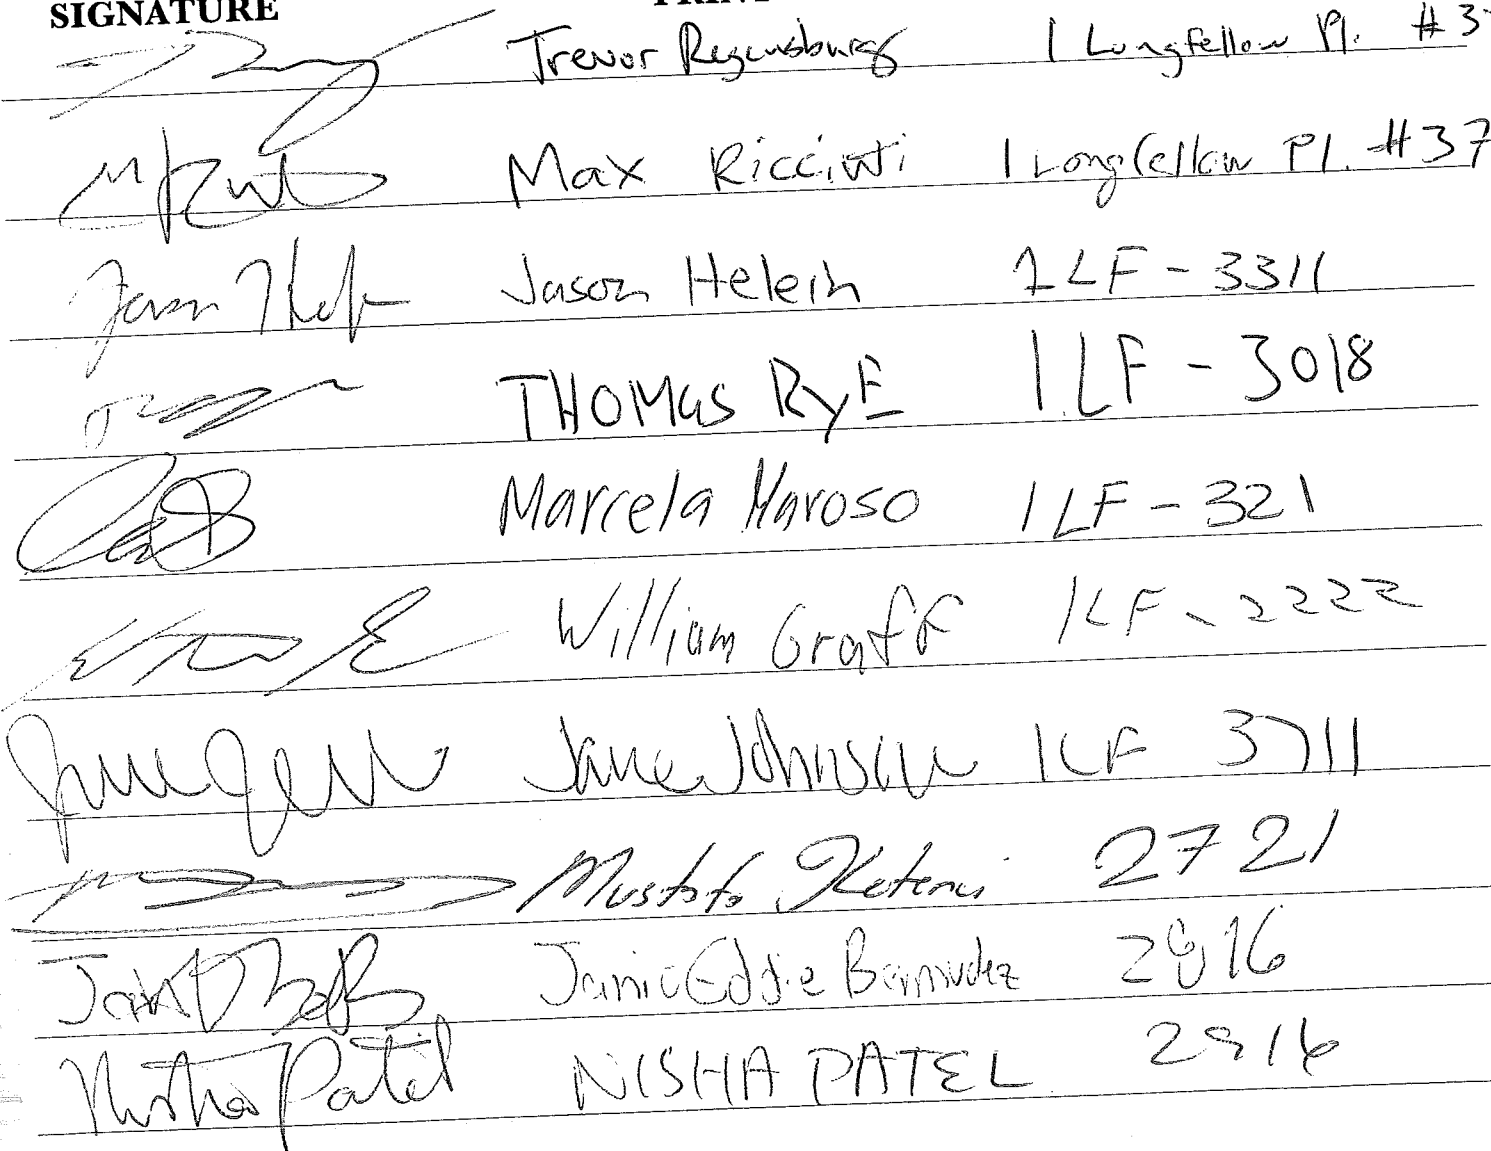 SIGNATURE PRINT
Trevor Regensburg 1 Longfellow Pl. #3
Max Ricciuti 1 Longfellow Pl. #37
Jason Helein 1LF - 3311
THOMAS RyE 1LF - 3018
Marcela Maroso 1LF - 321
William Graff 1LF - 2222
Jane Johnson 1LF 3711
Mustafa 2721
Eddie Bermudez 2916
Nisha Patel NISHA PATEL 2916